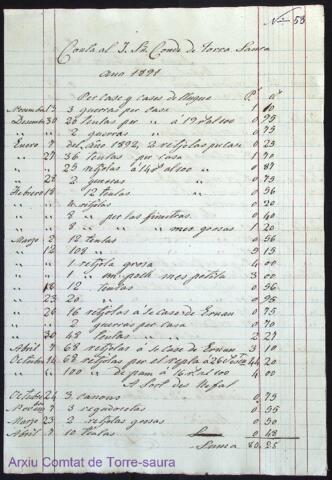 Nº 53
Conta al I. Sr. Conde de Torre Sauca
ano 1891
Per case y cases de lluque
Novembre 13 3 guerras per case 1 10
Desembre 30 20 teulas per " à 19 al 100 0 95
" " 2 guerras " 0 75
Enero 7 del año 1892, 2 retjolas per case 0 23
" 27 36 teulas per casa 1 70
" " 23 retjolas à 0 87
" 28 2 guerras 0 73
Febrero 18 12 teulas 0 56
" " retjolas 0 20
" " 8 " per las finestras 0 40
" " 8 " " mes grosas 1 20
Marzo 2 12 teulas 0 56
" 12 108 " 5 13
" " 1 retjola grosa 4 00
" " 1 " mes petita 3 00
" 18 12 teulas 0 56
" 23 20 " 0 95
" 26 16 retjolas à se case de Ernau 0 75
" " 2 guerras per casa 0 70
" 30 48 teulas " " 2 27
Abril 7 68 retjolas à se case de Ernau 3 10
Octubre 14 68 retjolas per el regla à 26 44 20
" " 100 " de pam à 4 al 100 4 00
A Sort des Uefal
Octubre 24 3 canons 0 75
3 regadoretas 0 95
Marzo 23 2 retjolas grosas 0 50
Abril 7 10 teulas 0 48
Suma 80 25
Arxiu Comtat de Torre-saura